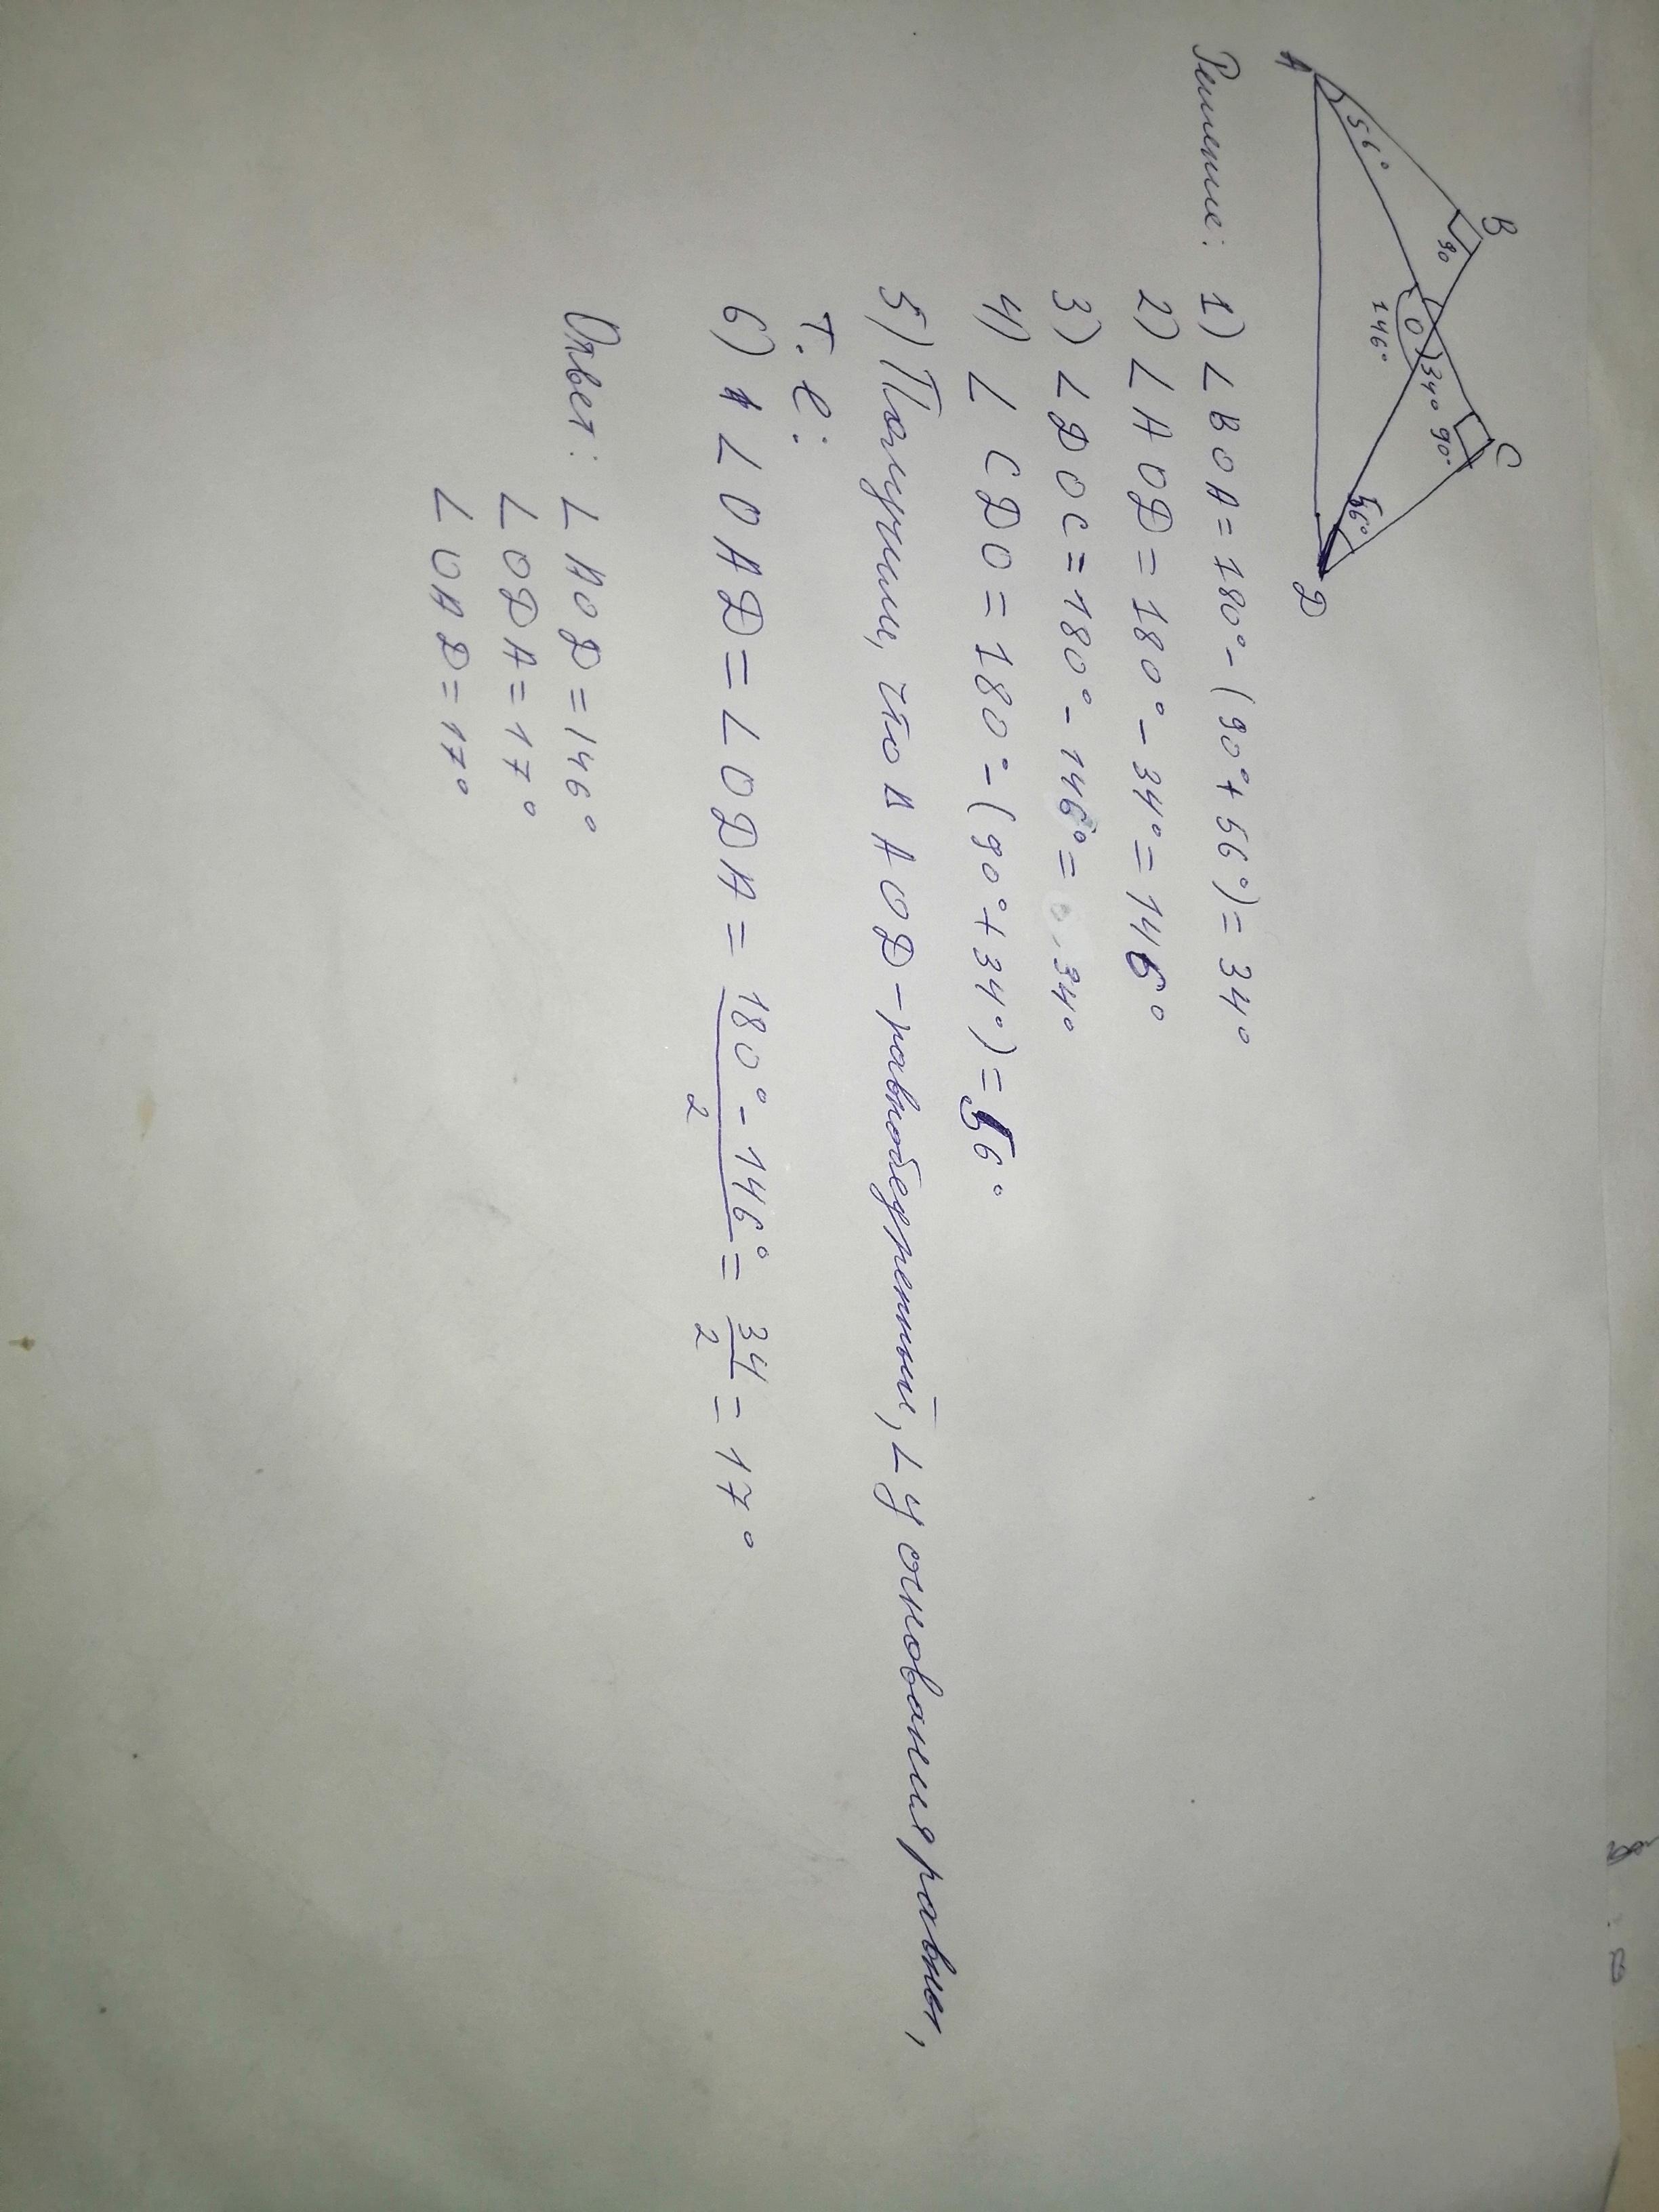 B
C
90
34°
90°
O
56°
146°
56°
A
D
Решение: 1) ∠BOA=180°-(90°+56°)=34°
2) ∠AOD=180°-34°=146°
3) ∠DOC=180°-146°=34°
4) ∠CDO=180°-(90°+34°)=56°
5) Получим, что Δ AOD-равнобедренный, ∠ у основания равны,
т.е:
6) ∠OAD=∠ODA= 180°-146° = 34 = 17°
2 2
Ответ: ∠AOD=146°
∠ODA=17°
∠OAD=17°